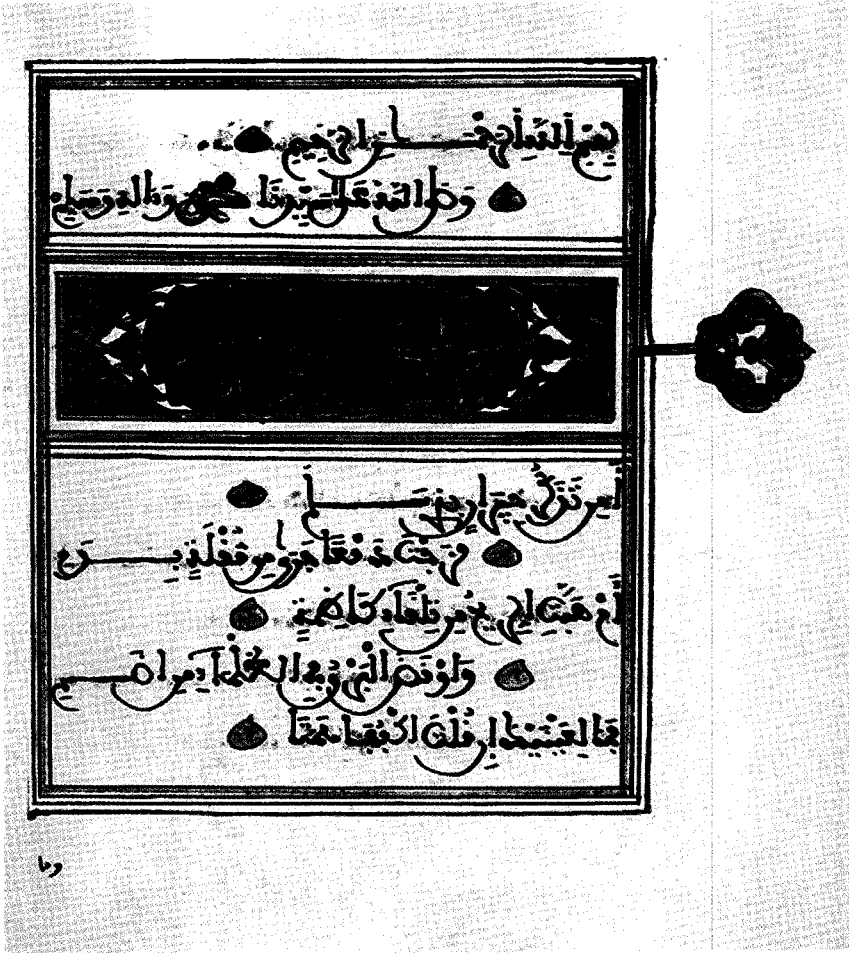 بسم الله الرحمن الرحيم
وصلى الله على سيدنا محمد وءاله وسلم
أمن تذكر جيران بذي سلم
مزجت دمعا جرى من مقلة بدم
أم هبت الريح من تلقاء كاظمة
وأومض البرق في الظلماء من إضم
فما لعينيك إن قلت اكففا همتا
وما